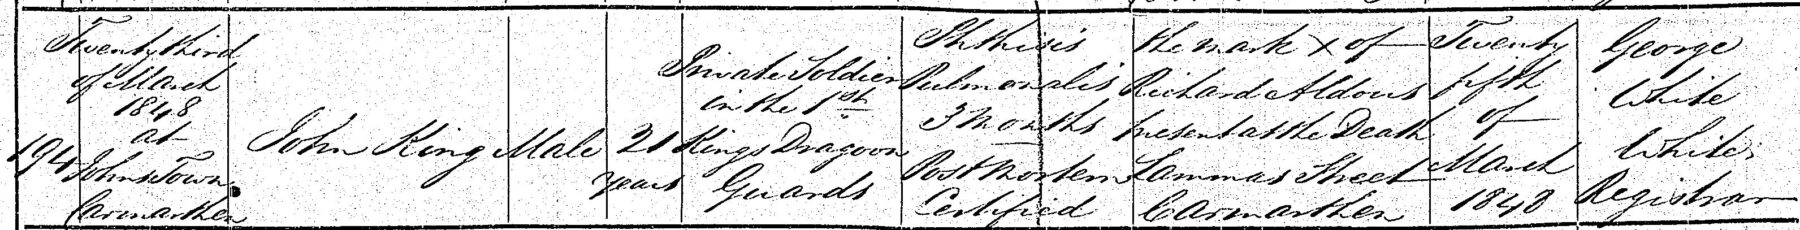 194
Twenty third
of March
1848
at
Johns Town
Carmarthen
John King
Male
21
years
Private Soldier
in the 1st
Kings Dragoon
Guards
Phthisis
Pulmonalis
3 Months
Post Mortem
Certified
The mark X of
Richard Aldous
present at the Death
Lammas Street
Carmarthen
Twenty
fifth
of
March
1848
George
White
Registrar